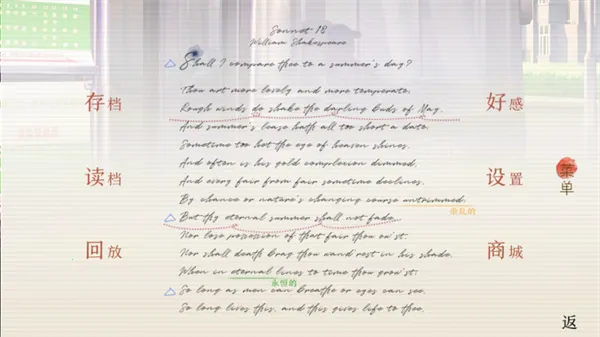 Sonnet 18
William Shakespeare
Shall I compare thee to a summer's day?
Thou art more lovely and more temperate.
Rough winds do shake the dapling buds of May.
And summer's lease hath all too short a date.
Sometime too hot the eye of heaven shines.
And often is his gold complexion dimmed.
And every fair from fair sometime declines.
By chance or nature's changing course untrimmed.
杂乱的
But thy eternal summer shall not fade.
Nor lose possession of that fair thou ow'st.
Nor shall death brag thou wand'rest in his shade.
When in eternal lines to time thou grow'st.
永恒的
So long as men can breathe or eyes can see.
So long lives this, and this gives life to thee.
存档
读档
回放
好感
设置
商城
菜单
返